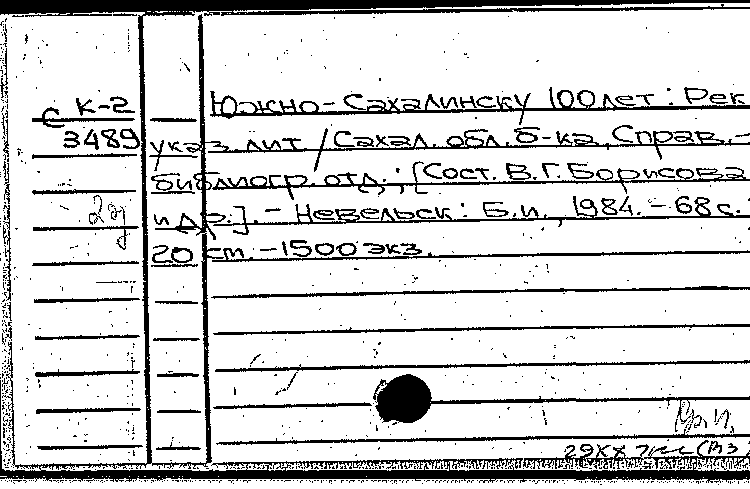 Южно-Сахалинску 100 лет: Рек.
С К-2
3489
указ. лит / Сахал. обл. б-ка, Справ.-
библиогр. отд.; [Сост. В.Г. Борисова
2 эз
и др.]. - Невельск: Б.и., 1984. - 68 с.
20 см. - 1500 экз.